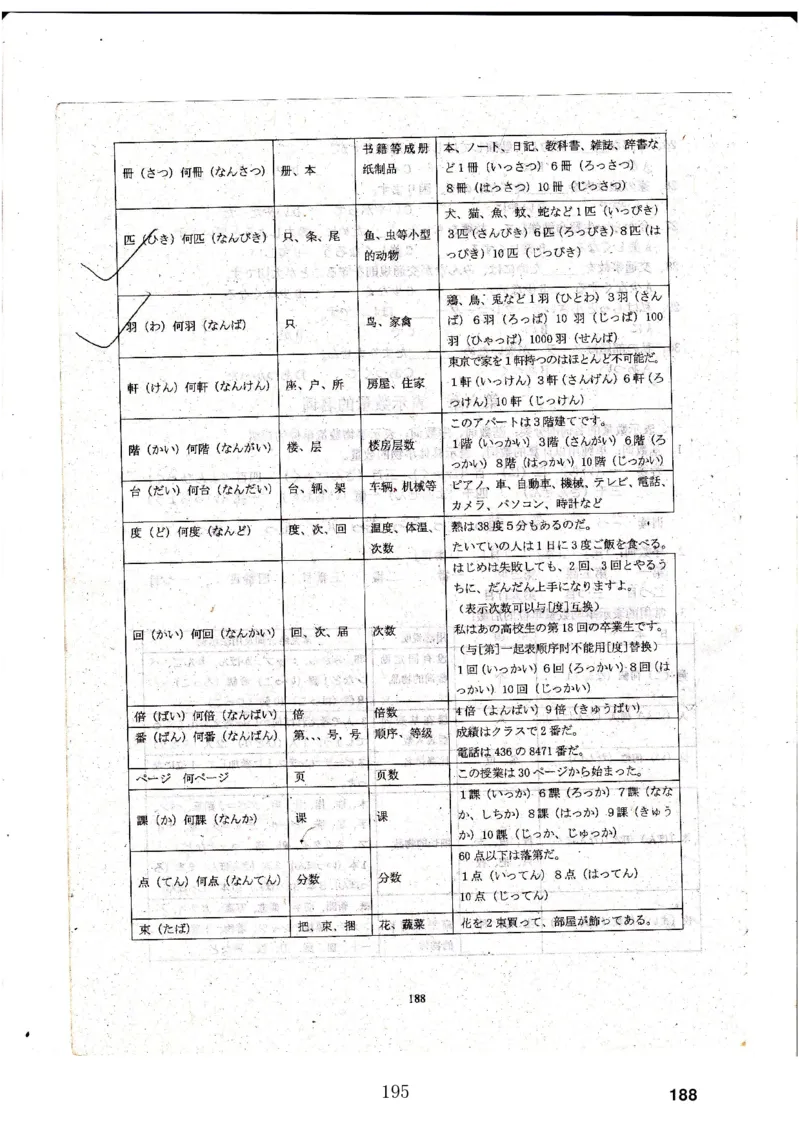 冊（さつ）何冊（なんさつ） 册、本 书籍等成册 本、ノート、日記、教科書、雑誌、辞書な
纸制品 ど1冊（いっさつ）6冊（ろっさつ）
8冊（はっさつ）10冊（じっさつ）
匹（ひき）何匹（なんびき） 只、条、尾 鱼、虫等小型 犬、猫、魚、蚊、蛇など1匹（いっぴき）
的动物 3匹（さんびき）6匹（ろっぴき）8匹（は
っぴき）10匹（じっぴき）
羽（わ）何羽（なんば） 只 鸟、家禽 鶏、鳥、兎など1羽（ひとわ）3羽（さん
ば）6羽（ろっぱ）10羽（じっぱ）100
羽（ひゃっぱ）1000羽（せんば）
軒（けん）何軒（なんけん） 座、户、所 房屋、住家 東京で家を1軒持つのはほとんど不可能だ。
1軒（いっけん）3軒（さんげん）6軒（ろ
っけん）10軒（じっけん）
階（かい）何階（なんがい） 楼、层 楼房层数 このアパートは3階建てです。
1階（いっかい）3階（さんがい）6階（ろ
っかい）8階（はっかい）10階（じっかい）
台（だい）何台（なんだい） 台、辆、架 车辆，机械等 ピアノ、車、自動車、機械、テレビ、電話、
カメラ、パソコン、時計など
度（ど）何度（なんど） 度、次、回 温度、体温、 熱は38度5分もあるのだ。
次数 たいていの人は1日に3度ご飯を食べる。
回（かい）何回（なんかい） 回、次、届 次数 はじめは失敗しても、2回、3回とやるう
ちに、だんだん上手になりますよ。
（表示次数可以与[度]互换）
私はあの高校生の第18回の卒業生です。
（与[第]一起表顺序时不能用[度]替换）
1回（いっかい）6回（ろっかい）8回（は
っかい）10回（じっかい）
倍（ばい）何倍（なんばい） 倍 倍数 4倍（よんばい）9倍（きゅうばい）
番（ばん）何番（なんばん） 第、、、号，号 顺序、等级 成績はクラスで2番だ。
電話は436の8471番だ。
ページ 何ページ 页 页数 この授業は30ページから始まった。
課（か）何課（なんか） 课 课 1課（いっか）6課（ろっか）7課（なな
か、しちか）8課（はっか）9課（きゅう
か）10課（じっか、じゅっか）
点（てん）何点（なんてん） 分数 分数 60点以下は落第だ。
1点（いってん）8点（はってん）
10点（じってん）
束（たば） 把、束、捆 花、蔬菜 花を2束買って、部屋が飾ってある。
188
195
188